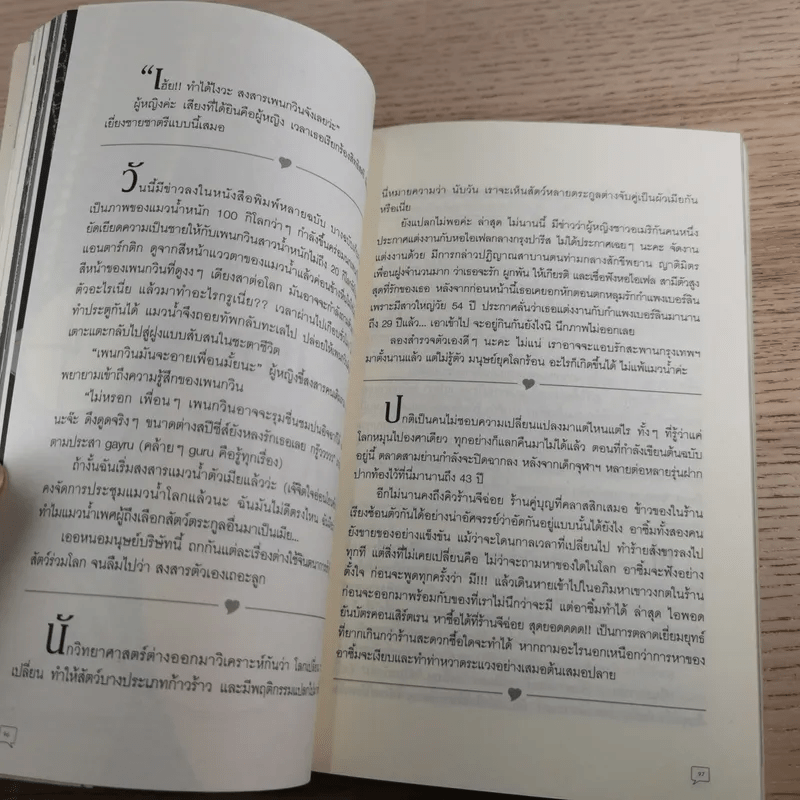 “เฮ้ย!! ทำได้ไงวะ สงสารเพนกวินจังเลยว่ะ”
ผู้หญิงค่ะ เสียงที่ได้ยินคือผู้หญิง เวลาเธอเรียกร้องสิทธิสตรี
เยี่ยงชายชาตรีแบบนี้เสมอ
วันนี้มีข่าวลงในหนังสือพิมพ์หลายฉบับ บางฉบับ
เป็นภาพของแมวน้ำหนัก 100 กิโลกว่าๆ กำลังขึ้นคร่อม
ยัดเยียดความเป็นชายให้กับเพนกวินสาวน้ำหนักไม่ถึง 20 กิโล
แอนตาร์กติก ดูจากสีหน้าแววตาของแมวน้ำแล้วค่อนข้าง
สีหน้าของเพนกวินที่ดูงงๆ เดียงสาต่อโลก มันอาจจะกำลัง
ตัวอะไรเนี่ย แล้วมาทำอะไรกรูเนี่ย?? เวลาผ่านไปเกือบ
ทำประตูกันได้ แมวน้ำจึงถอยทัพกลับทะเลไป ปล่อยให้เพนกวิน
เตาะแตะกลับไปสู่ฝูงแบบสับสนในชะตาชีวิต
“เพนกวินมันจะอายเพื่อนมั้ยนะ” ผู้หญิงขี้สงสารคนเดิม
พยายามเข้าถึงความรู้สึกของเพนกวิน
“ไม่หรอก เพื่อนๆ เพนกวินอาจจะรุมชื่นชมปนอิจฉา
นะจ๊ะ ดึงดูดจริงๆ ขนาดต่างสปีชีส์ยังหลงรักเธอเลย กรู้ววรรรู
ตามประสา gayru (คล้ายๆ guru คือรู้ทุกเรื่อง)
ถ้างั้นฉันเริ่มสงสารแมวน้ำตัวเมียแล้วว่ะ (เจ๊จิตใจอ่อนโยน
คงจัดการประชุมแมวน้ำโลกแล้วนะ ฉันมันไม่ดีตรงไหน
ทำไมแมวน้ำเพศผู้ถึงเลือกสัตว์ตระกูลอื่นมาเป็นเมีย...
เออหนอมนุษย์บริษัทนี้ ถกกันแต่ละเรื่องต่างใช้จินตนาการ
สัตว์ร่วมโลก จนลืมไปว่า สงสารตัวเองเถอะลูก
นักวิทยาศาสตร์ต่างออกมาวิเคราะห์กันว่า โลกเปลี่ยน
เปลี่ยน ทำให้สัตว์บางประเภทก้าวร้าว และมีพฤติกรรมแปลก
96
นี่หมายความว่า นับวัน เราจะเห็นสัตว์หลายตระกูลต่างจับคู่เป็นผัวเมียกัน
หรือเนี่ย
ยังแปลกไม่พอค่ะ ล่าสุด ไม่นานนี้ มีข่าวว่าผู้หญิงชาวอเมริกันคนหนึ่ง
ประกาศแต่งงานกับหอไอเฟลกลางกรุงปารีส ไม่ได้ประกาศเฉยๆ นะคะ จัดงาน
แต่งงานด้วย มีการกล่าวปฏิญาณสาบานตนท่ามกลางสักขีพยาน ญาติมิตร
เพื่อนฝูงจำนวนมาก ว่าเธอจะรัก ผูกพัน ให้เกียรติ และเชื่อฟังหอไอเฟล สามีตัวสูง
สุดที่รักของเธอ หลังจากก่อนหน้านี้เธอเคยอกหักตอนตกหลุมรักกำแพงเบอร์ลิน
เพราะมีสาวใหญ่วัย 54 ปี ประกาศลั่นว่าเธอแต่งงานกับกำแพงเบอร์ลินมานาน
ถึง 29 ปีแล้ว... เอาเข้าไป จะอยู่กินกันยังไงนิ นึกภาพไม่ออกเลย
ลองสำรวจตัวเองดีๆ นะคะ ไม่แน่ เราอาจจะแอบรักสะพานกรุงเทพฯ
มาตั้งนานแล้ว แต่ไม่รู้ตัว มนุษย์ยุคโลกร้อน อะไรก็เกิดขึ้นได้ ไม่แพ้แมวน้ำค่ะ
ปกติเป็นคนไม่ชอบความเปลี่ยนแปลงมาแต่ไหนแต่ไร ทั้งๆ ที่รู้ว่าแค่
โลกหมุนไปองศาเดียว ทุกอย่างก็แลกคืนมาไม่ได้แล้ว ตอนที่กำลังเขียนต้นฉบับ
อยู่นี้ ตลาดสามย่านกำลังจะปิดฉากลง หลังจากเด็กจุฬาฯ หลายต่อหลายรุ่นฝาก
ปากท้องไว้ที่นี่มานานถึง 43 ปี
อีกไม่นานคงถึงคิวร้านจีฉ่อย ร้านคู่บุญที่คลาสสิกเสมอ ข้าวของในร้าน
เรียงซ้อนตัวกันได้อย่างน่าอัศจรรย์ว่าอัดกันอยู่แบบนั้นได้ยังไง อาซิ้มทั้งสองคน
ยังขายของอย่างแข็งขัน แม้ว่าจะโดนกาลเวลาที่เปลี่ยนไป ทำร้ายสังขารลงไป
ทุกที แต่สิ่งที่ไม่เคยเปลี่ยนคือ ไม่ว่าจะถามหาของใดในโลก อาซิ้มจะฟังอย่าง
ตั้งใจ ก่อนจะพูดทุกครั้งว่า มี!!! แล้วเดินหายเข้าไปในอภิมหาเขาวงกตในร้าน
ก่อนจะออกมาพร้อมกับของที่เราไม่นึกว่าจะมี แต่อาซิ้มทำได้ ล่าสุด ไอพอด
ยันบัตรคอนเสิร์ตเรน หาซื้อได้ที่ร้านจีฉ่อย สุดยอดดดด!! เป็นการตลาดเยี่ยมยุทธ์
ที่ยากเกินกว่าร้านสะดวกซื้อใดจะทำได้ หากถามอะไรนอกเหนือกว่าการหาของ
อาซิ้มจะเงียบและทำท่าหวาดระแวงอย่างเสมอต้นเสมอปลาย
97